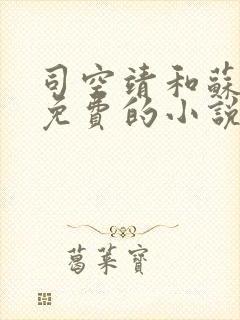 司空靖和蘇
免費的小說
葛菜寶